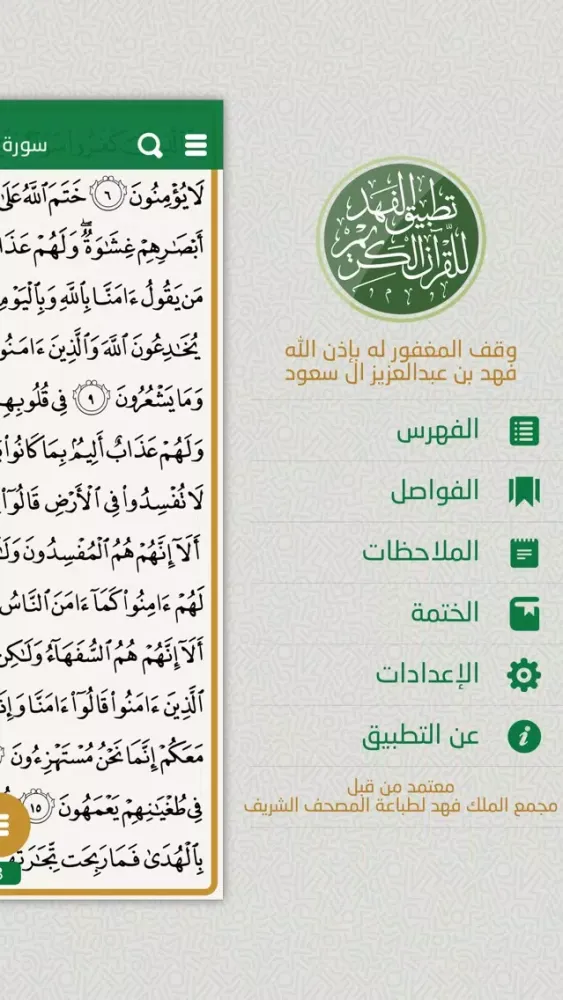 تطبيق الفهد
للقرآن الكريم
وقف المغفور له بإذن الله
فهد بن عبدالعزيز ال سعود
الفهرس
الفواصل
الملاحظات
الختمة
الإعدادات
عن التطبيق
معتمد من قبل
مجمع الملك فهد لطباعة المصحف الشريف
سورة
لَا يُؤْمِنُونَ ٦ خَتَمَ ٱللَّهُ عَلَىٰ
أَبْصَٰرِهِمْ غِشَٰوَةٌۖ وَلَهُمْ عَذَا
مَن يَقُولُ ءَامَنَّا بِٱللَّهِ وَبِٱلْيَوْمِ
يُخَٰدِعُونَ ٱللَّهَ وَٱلَّذِينَ ءَامَنُو
وَمَا يَشْعُرُونَ ٩ فِي قُلُوبِهِ
وَلَهُمْ عَذَابٌ أَلِيمُۢ بِمَا كَانُواْ
لَا تُفْسِدُواْ فِي ٱلْأَرْضِ قَالُوٓاْ
أَلَآ إِنَّهُمْ هُمُ ٱلْمُفْسِدُونَ وَلَٰ
لَهُمْ ءَامِنُواْ كَمَآ ءَامَنَ ٱلنَّاسُ
أَلَآ إِنَّهُمْ هُمُ ٱلسُّفَهَآءُ وَلَٰكِن
ٱلَّذِينَ ءَامَنُواْ قَالُوٓاْ ءَامَنَّا وَإِذَ
مَعَكُمْ إِنَّمَا نَحْنُ مُسْتَهْزِءُونَ
فِي طُغْيَٰنِهِمْ يَعْمَهُونَ ١٥
بِٱلْهُدَىٰ فَمَا رَبِحَت تِّجَٰرَتُهُ